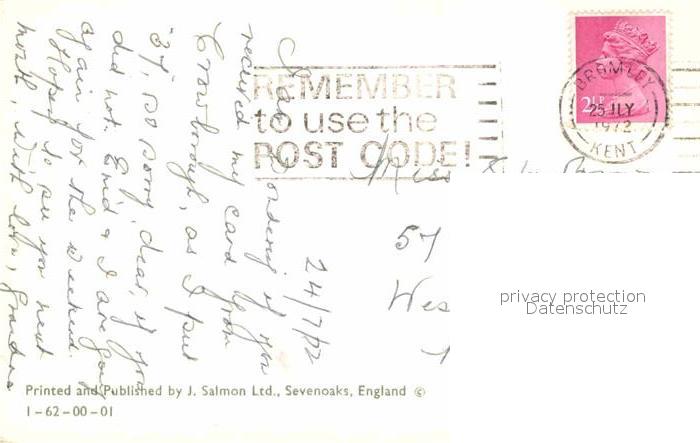 24/7/72
I am wondering if you
received my card from
Crowborough, as I put
37, so sorry, dear, if you
did not. Enid & I are going
again for the weekend.
Hope to see you next
month, with love, Grandma
REMEMBER
to use the
POST CODE!
2½P
BROMLEY
25 JLY
1972
KENT
Miss
57
Wes
privacy protection
Datenschutz
Printed and Published by J. Salmon Ltd., Sevenoaks, England ©
1-62-00-01